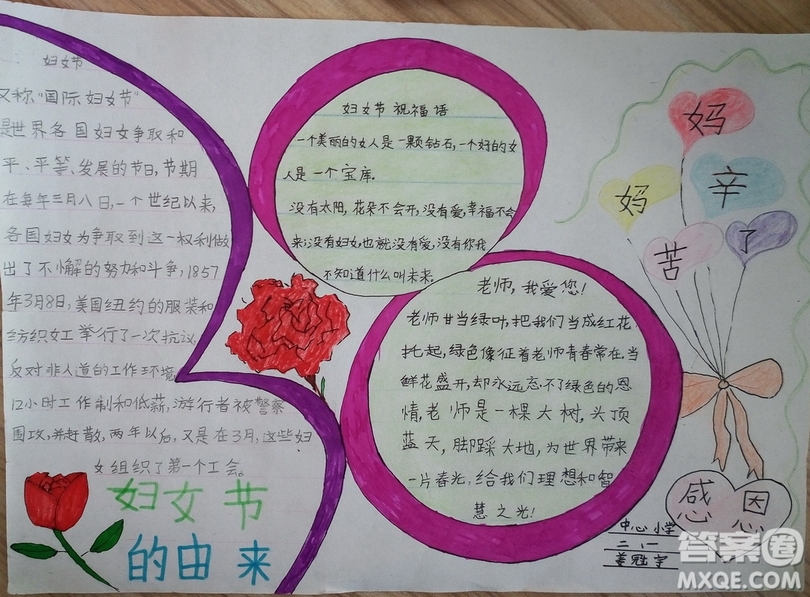 妇女节
又称"国际妇女节"
是世界各国妇女争取和
平、平等、发展的节日,节期
在每年三月八日,一个世纪以来,
各国妇女为争取到这一权利做
出了不懈的努力和斗争,1857
年3月8日,美国纽约的服装和
纺织女工举行了一次抗议
反对非人道的工作环境
12小时工作制和低薪,游行者被警察
围攻,并赶散,两年以后,又是在3月,这些妇
女组织了第一个工会。
妇女节
的由来
妇女节祝福语
一个美丽的女人是一颗钻石,一个好的女
人是一个宝库.
没有太阳,花朵不会开,没有爱,幸福不会
来;没有妇女,也就没有爱,没有你我
不知道什么叫未来.
老师,我爱您!
老师甘当绿叶,把我们当成红花
扎起,绿色像征着老师青春常在.当
鲜花盛开,却永远忘不了绿色的恩
情,老师是一棵大树,头顶
蓝天,脚踩大地,为世界带来
一片春光,给我们理想和智
慧之光!
妈
妈
辛
苦
了
感恩
中心小学
二、一
姜胜宇
答案圈
MXQE.COM